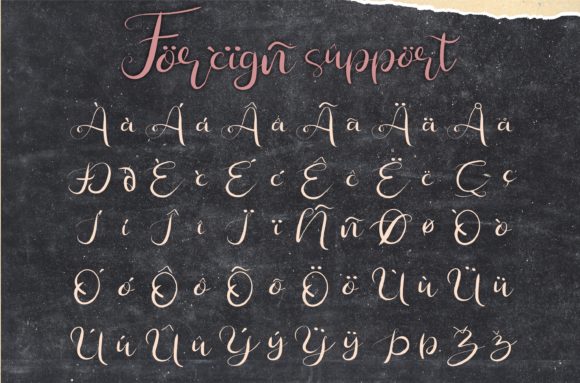 Förèïgñ sûppört
À à Á á Â â Ã ã Ä ä Å å
Ð ð È è É é Ê ê Ë ë Ç ç
Í í Î î Ï ï Ñ ñ Ø ø Ò ò
Ó ó Ô ô Õ õ Ö ö Ù ù Ü ü
Ú ú Û û Ý ý Ÿ ÿ Þ þ Ž ž